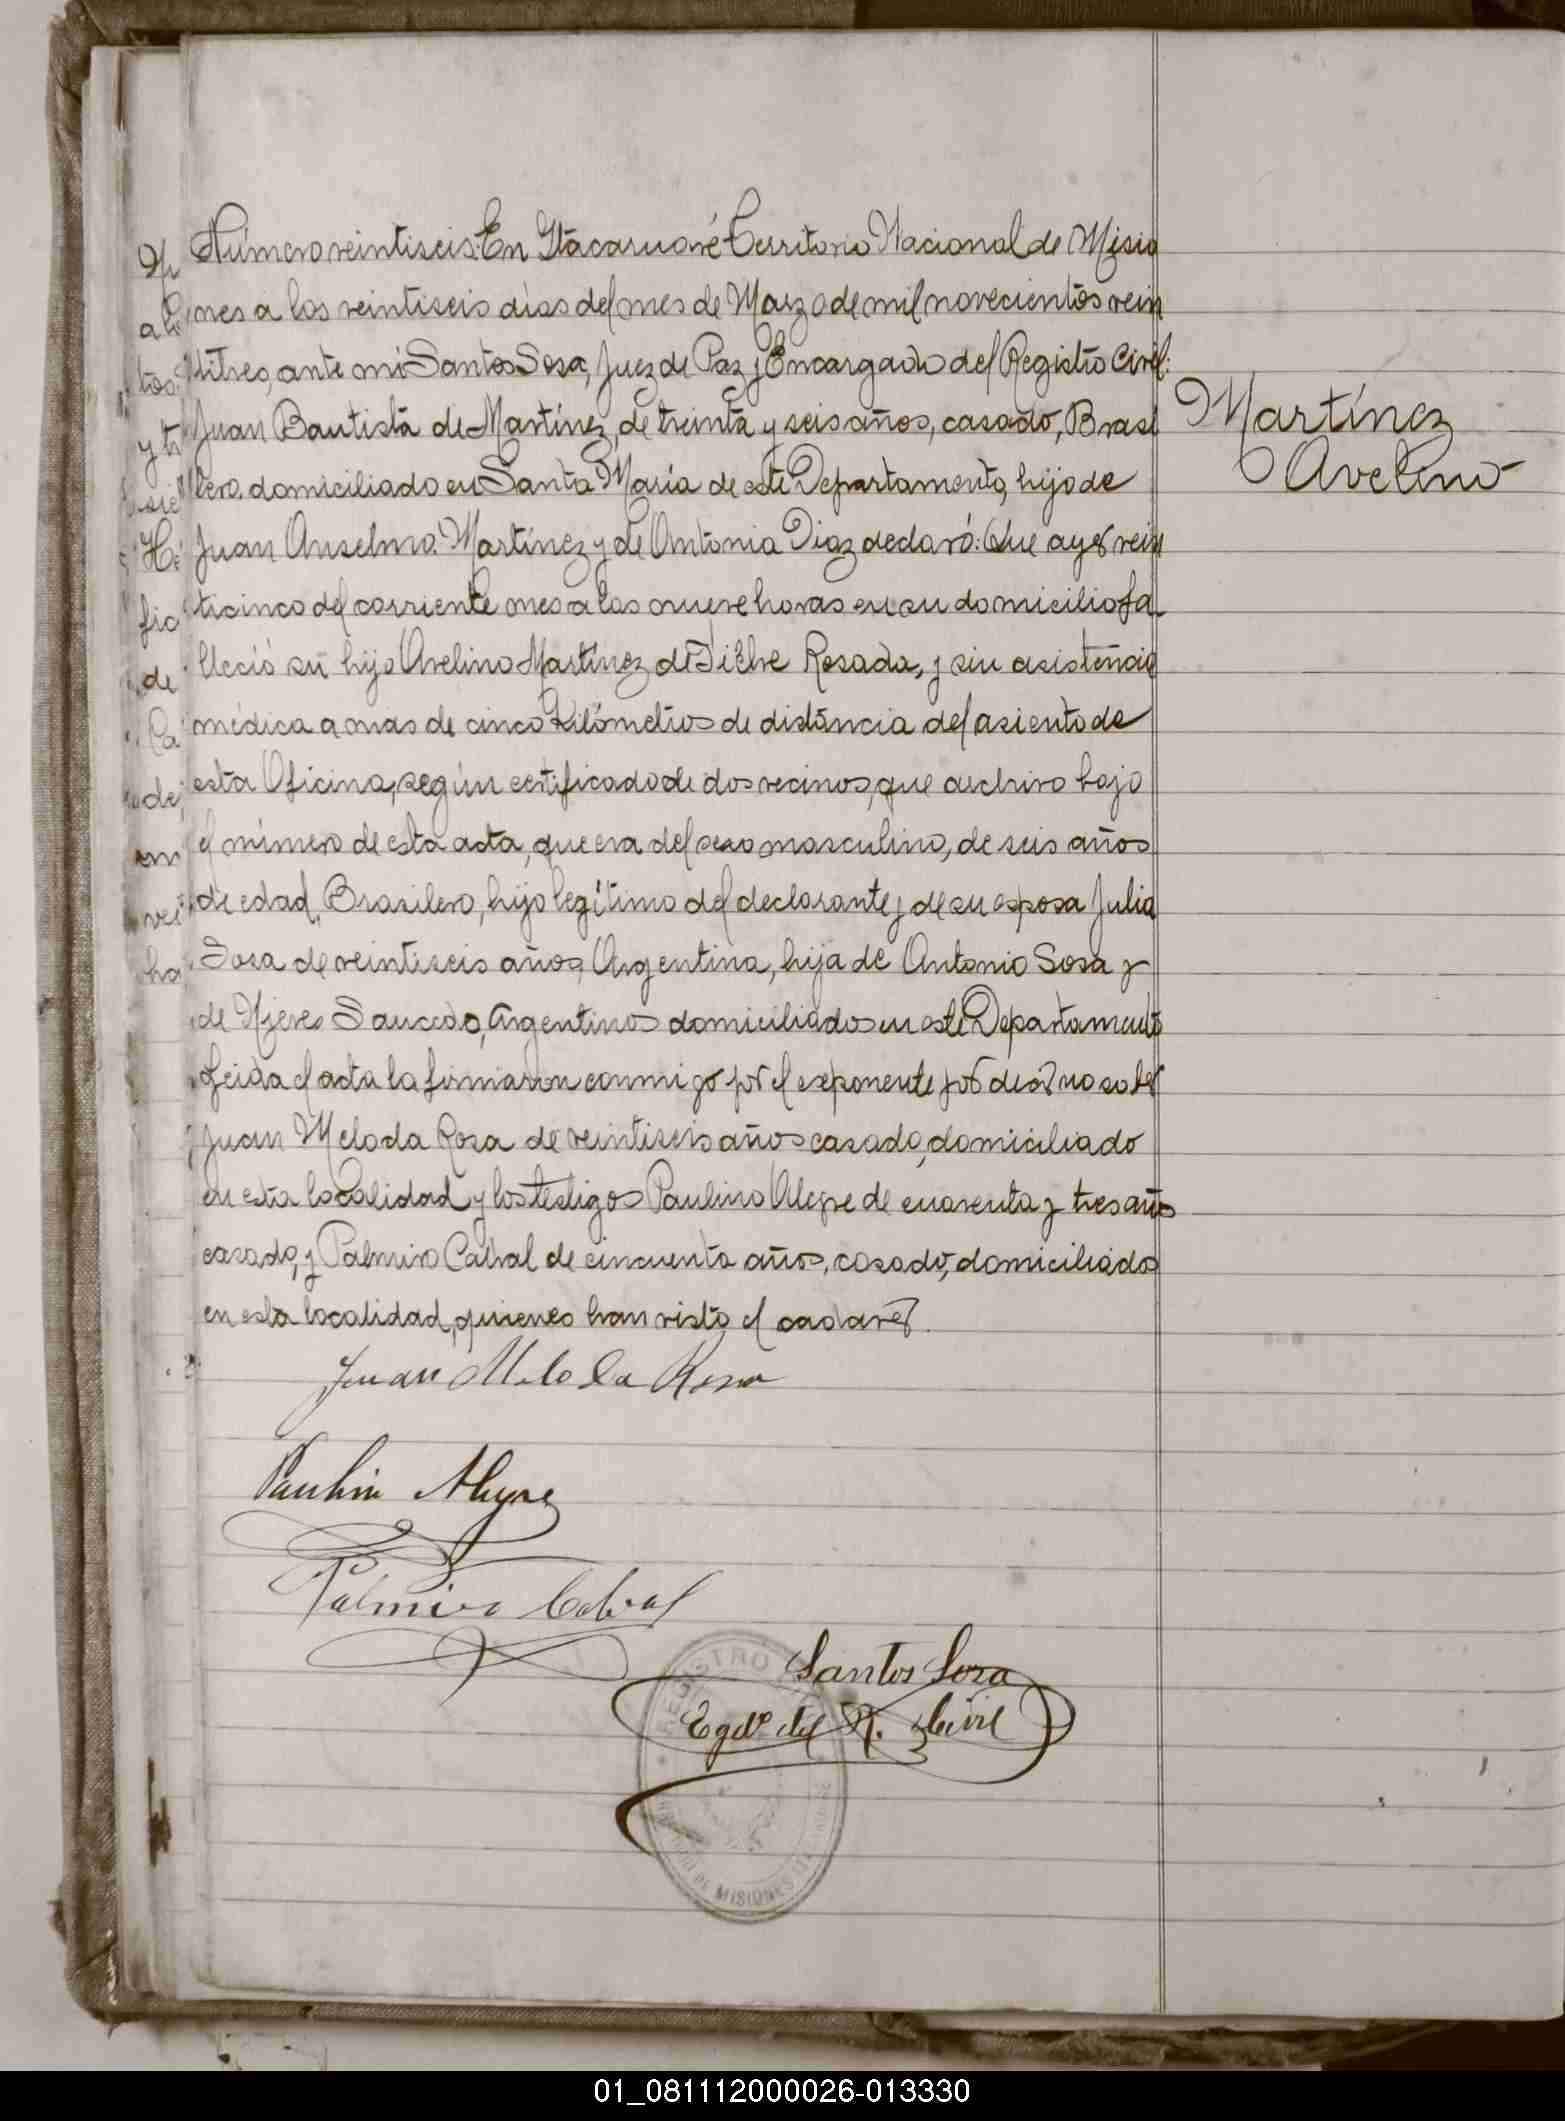 Número veintiseis: En Itacaruaré Territorio Nacional de Misio
nes a los veintiseis días del mes de Marzo de mil novecientos vein
titres, ante mi Santos Sosa, Juez de Paz y Encargado del Registro Civil:
Juan Bautista de Martínez, de treinta y seis años, casado, Brasi
lero, domiciliado en Santa María de este Departamento, hijo de
Juan Anselmo Martínez y de Antonia Diaz declaró: Que ayer vein
ticinco del corriente mes a las nueve horas en su domicilio fa
lleció su hijo Avelino Martínez de Fiebre Rosada, y sin asistencia
médica a mas de cinco Kilómetros de distancia del asiento de
esta Oficina, según certificado de dos vecinos, que archivo bajo
el número de esta acta, que era del sexo masculino, de seis años
de edad, Brasilero, hijo legítimo del declarante y de su esposa Julia
Sosa de veintiseis años, Argentina, hija de Antonio Sosa y
de Saucedo, Argentinos domiciliados en este Departamento
Leida el acta la firmaron conmigo por el exponente por decir no saber
Juan Melo da Rosa de veintiseis años casado, domiciliado
en esta localidad y los testigos Paulino Alegre de cuarenta y tres años
casado, y Palmiro Cabral de cincuenta años, casado, domiciliados
en esta localidad, quienes han visto el cadaver.
Martínez
Avelino
Juan Melo da Rosa
Paulin Alegre
Palmiro Cabral
Santos Sosa
Egdo. del R. Civil
REGISTRO
DE MISIONES
01_081112000026-013330